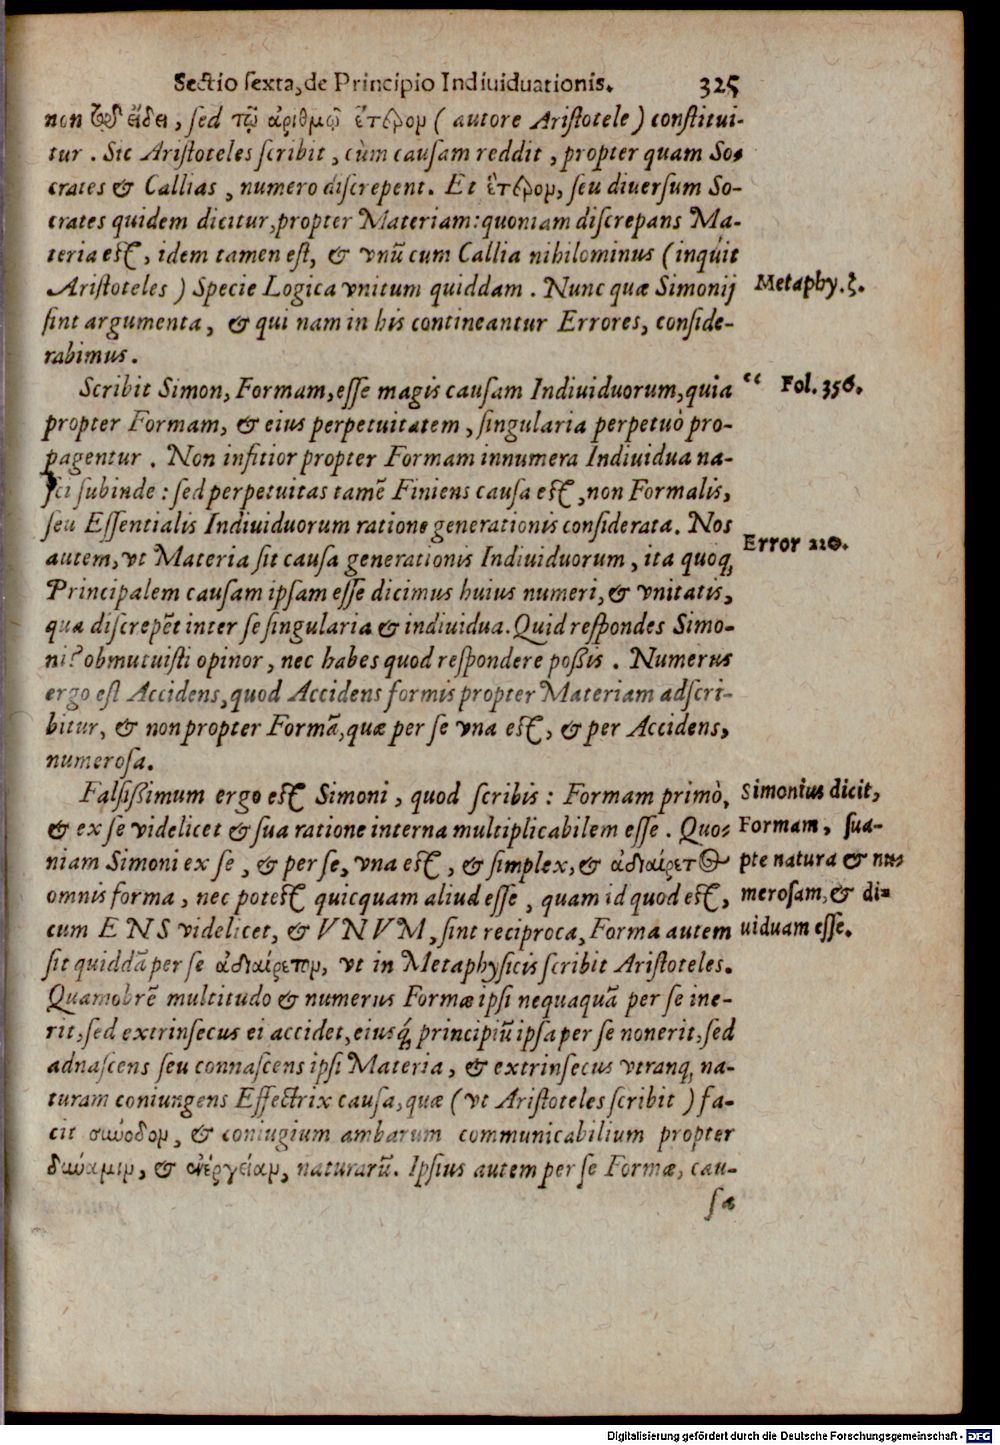 Sectio sexta, de Principio Indiuiduationis. 325
non τῷ εἴδει, sed τῷ ἀριθμῷ ἕτερον (autore Aristotele) constitui-
tur. Sic Aristoteles scribit, cùm causam reddit, propter quam So-
crates & Callias, numero discrepent. Et ἕτερον, seu diuersum So-
crates quidem dicitur, propter Materiam: quoniam discrepans Ma-
teria est, idem tamen est, & vnũ cum Callia nihilominus (inquit
Aristoteles) Specie Logica vnitum quiddam. Nunc quæ Simonij
Metaphy. ζ.
sint argumenta, & qui nam in his contineantur Errores, conside-
rabimus.
Scribit Simon, Formam, esse magis causam Indiuiduorum, quia
“ Fol. 356.
propter Formam, & eius perpetuitatem, singularia perpetuò pro-
pagentur. Non infitior propter Formam innumera Indiuidua na-
sci subinde: sed perpetuitas tamẽ Finiens causa est, non Formalis,
seu Essentialis Indiuiduorum ratione generationis considerata. Nos
Error 210.
autem, vt Materia sit causa generationis Indiuiduorum, ita quoq;
Principalem causam ipsam esse dicimus huius numeri, & vnitatis,
qua discrepẽt inter se singularia & indiuidua. Quid respondes Simo-
ni? obmutuisti opinor, nec habes quod respondere poßis. Numerus
ergo est Accidens, quod Accidens formis propter Materiam adscri-
bitur, & non propter Formã, quæ per se vna est, & per Accidens,
numerosa.
Falsißimum ergo est Simoni, quod scribis: Formam primò,
& ex se videlicet & sua ratione interna multiplicabilem esse. Quo-
niam Simoni ex se, & per se, vna est, & simplex, & ἀδιαίρετος
omnis forma, nec potest quicquam aliud esse, quam id quod est,
cum ENS videlicet, & VNVM, sint reciproca, Forma autem
Simonius dicit,
Formam, sua-
pte natura & nu-
merosam, & di-
uiduam esse.
sit quiddã per se ἀδιαίρετον, vt in Metaphysicis scribit Aristoteles.
Quamobrẽ multitudo & numerus Formæ ipsi nequaquã per se ine-
rit, sed extrinsecus ei accidet, eiusq́; principiũ ipsa per se non erit, sed
adnascens seu connascens ipsi Materia, & extrinsecus vtranq; na-
turam coniungens Effectrix causa, quæ (vt Aristoteles scribit) fa-
cit σύνοδον, & coniugium ambarum communicabilium propter
δύναμιν, & ἐνέργειαν, naturarũ. Ipsius autem per se Formæ, cau-
sa
Digitalisierung gefördert durch die Deutsche Forschungsgemeinschaft - DFG